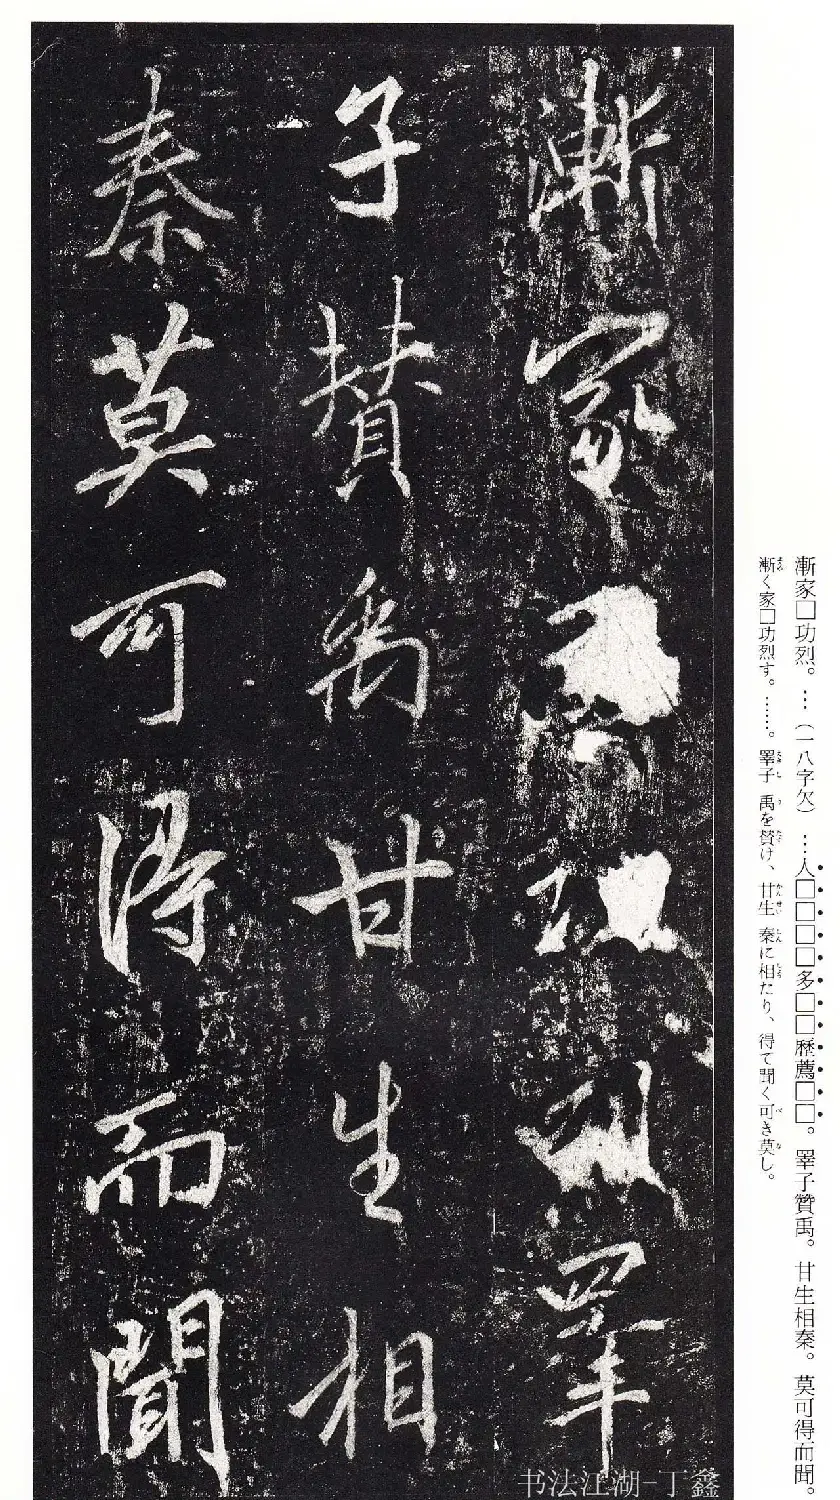 漸家□功烈。…(一八字欠)…人□□□□多□□歷薦□□。睪子贊禹。甘生相秦。莫可得而聞。
漸く家□功烈す。……。睪子 禹を贊け、甘生 秦に相たり、得て聞く可き莫し。
漸家功烈睪
子贊禹甘生相
秦莫可得而聞
书法江湖-丁鑫